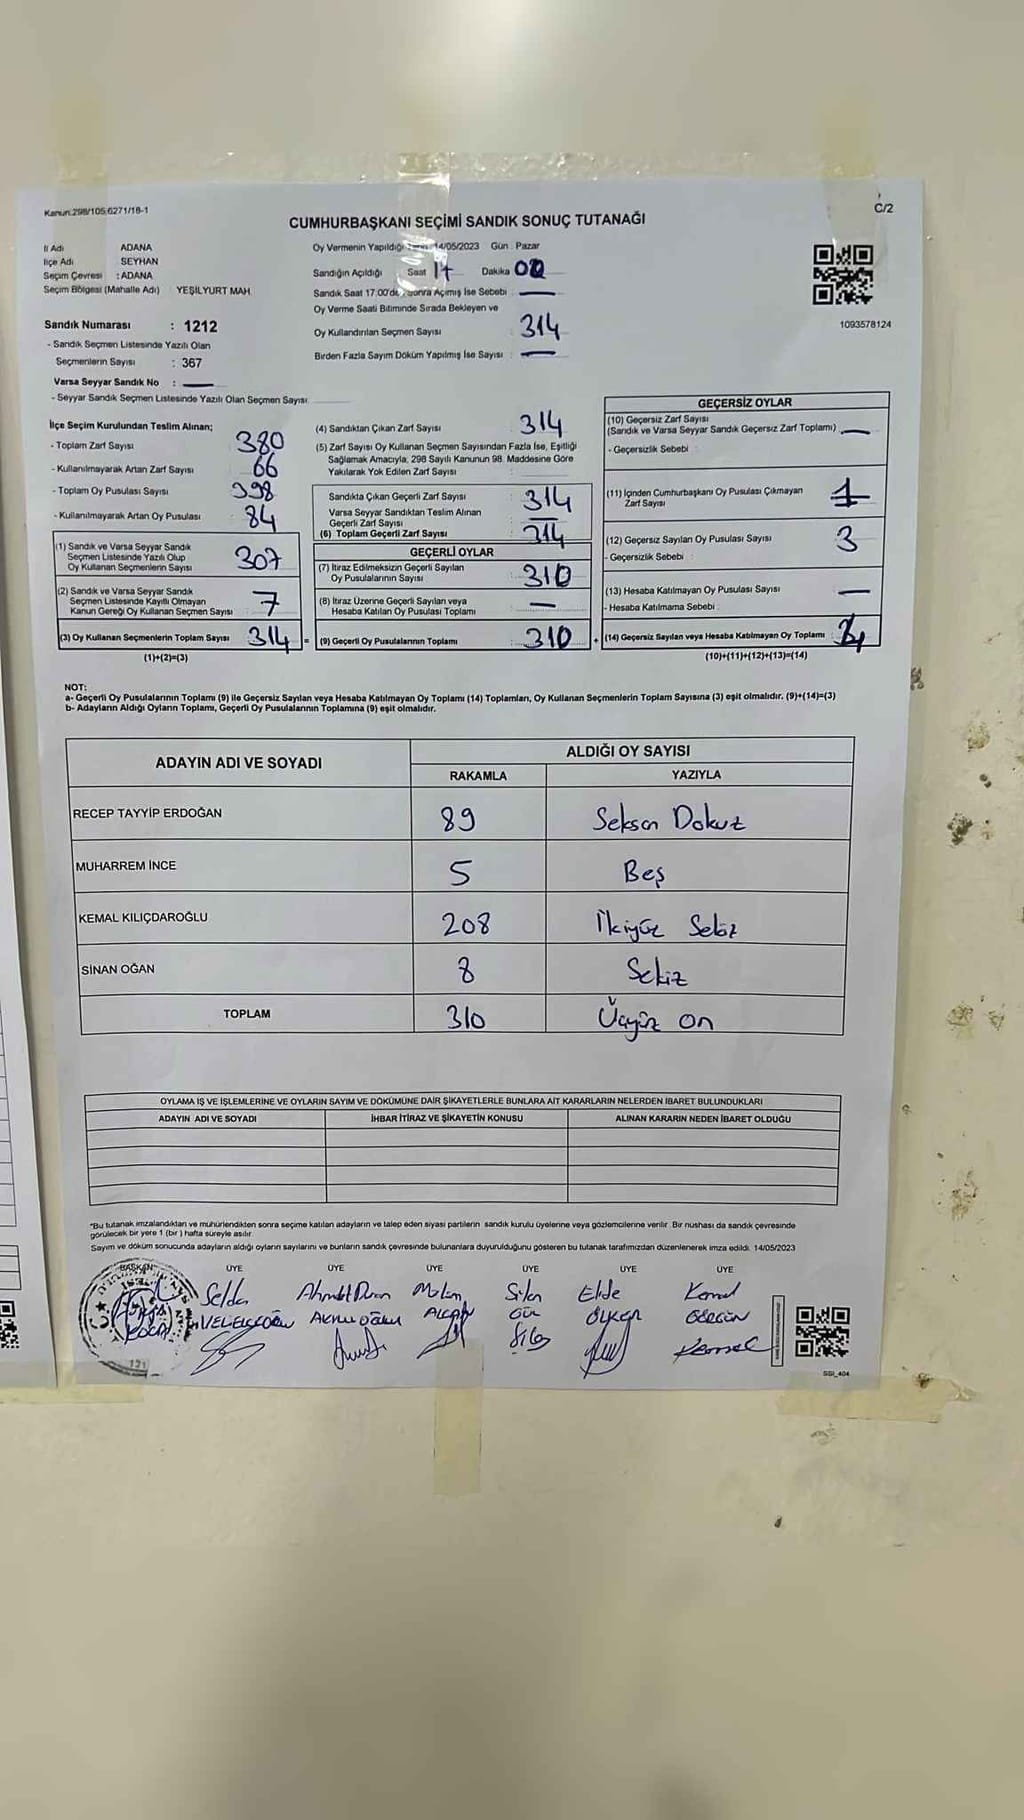 Kanun:298/105;6271/18-1
C/2
CUMHURBAŞKANI SEÇİMİ SANDIK SONUÇ TUTANAĞI
İl Adı ADANA
İlçe Adı SEYHAN
Seçim Çevresi : ADANA
Seçim Bölgesi (Mahalle Adı) YEŞİLYURT MAH.
Sandık Numarası : 1212
- Sandık Seçmen Listesinde Yazılı Olan
Seçmenlerin Sayısı : 367
Varsa Seyyar Sandık No : —
- Seyyar Sandık Seçmen Listesinde Yazılı Olan Seçmen Sayısı:
Oy Vermenin Yapıldığı 14/05/2023 Gün : Pazar
Sandığın Açıldığı Saat 17 Dakika
Sandık Saat 17:00'den Sonra Açımış İse Sebebi : —
Oy Verme Saati Bitiminde Sırada Bekleyen ve
Oy Kullandırılan Seçmen Sayısı : 314
Birden Fazla Sayım Döküm Yapılmış İse Sayısı : —
1093578124
İlçe Seçim Kurulundan Teslim Alınan;
- Toplam Zarf Sayısı : 380
- Kullanılmayarak Artan Zarf Sayısı : 66
- Toplam Oy Pusulası Sayısı : 398
- Kullanılmayarak Artan Oy Pusulası : 84
(1) Sandık ve Varsa Seyyar Sandık
Seçmen Listesinde Yazılı Olup
Oy Kullanan Seçmenlerin Sayısı : 307
(2) Sandık ve Varsa Seyyar Sandık
Seçmen Listesinde Kayıtlı Olmayan
Kanun Gereği Oy Kullanan Seçmen Sayısı : 7
(3) Oy Kullanan Seçmenlerin Toplam Sayısı : 314
(1)+(2)=(3)
(4) Sandıktan Çıkan Zarf Sayısı : 314
(5) Zarf Sayısı Oy Kullanan Seçmen Sayısından Fazla İse, Eşitliği
Sağlamak Amacıyla, 298 Sayılı Kanunun 98. Maddesine Göre
Yakılarak Yok Edilen Zarf Sayısı :
Sandıkta Çıkan Geçerli Zarf Sayısı : 314
Varsa Seyyar Sandıktan Teslim Alınan
Geçerli Zarf Sayısı : —
(6) Toplam Geçerli Zarf Sayısı : 314
GEÇERLİ OYLAR
(7) İtiraz Edilmeksizin Geçerli Sayılan
Oy Pusulalarının Sayısı : 310
(8) İtiraz Üzerine Geçerli Sayılan veya
Hesaba Katılan Oy Pusulası Toplamı : —
= (9) Geçerli Oy Pusulalarının Toplamı : 310 +
GEÇERSİZ OYLAR
(10) Geçersiz Zarf Sayısı
(Sandık ve Varsa Seyyar Sandık Geçersiz Zarf Toplamı) : —
- Geçersizlik Sebebi :
(11) İçinden Cumhurbaşkanı Oy Pusulası Çıkmayan
Zarf Sayısı : 1
(12) Geçersiz Sayılan Oy Pusulası Sayısı : 3
- Geçersizlik Sebebi :
(13) Hesaba Katılmayan Oy Pusulası Sayısı : —
- Hesaba Katılmama Sebebi :
(14) Geçersiz Sayılan veya Hesaba Katılmayan Oy Toplamı :
(10)+(11)+(12)+(13)=(14)
NOT:
a- Geçerli Oy Pusulalarının Toplamı (9) ile Geçersiz Sayılan veya Hesaba Katılmayan Oy Toplamı (14) Toplamları, Oy Kullanan Seçmenlerin Toplam Sayısına (3) eşit olmalıdır. (9)+(14)=(3)
b- Adayların Aldığı Oyların Toplamı, Geçerli Oy Pusulalarının Toplamına (9) eşit olmalıdır.
ADAYIN ADI VE SOYADI
ALDIĞI OY SAYISI
RAKAMLA YAZIYLA
RECEP TAYYİP ERDOĞAN 89 Seksen Dokuz
MUHARREM İNCE 5 Beş
KEMAL KILIÇDAROĞLU 208 İkiyüz Sekiz
SİNAN OĞAN 8 Sekiz
TOPLAM 310 Üçyüz on
OYLAMA İŞ VE İŞLEMLERİNE VE OYLARIN SAYIM VE DÖKÜMÜNE DAİR ŞİKAYETLERLE BUNLARA AİT KARARLARIN NELERDEN İBARET BULUNDUKLARI
ADAYIN ADI VE SOYADI İHBAR İTİRAZ VE ŞİKAYETİN KONUSU ALINAN KARARIN NEDEN İBARET OLDUĞU
*Bu tutanak imzalandıktan ve mühürlendikten sonra seçime katılan adayların ve talep eden siyasi partilerin sandık kurulu üyelerine veya gözlemcilerine verilir. Bir nüshası da sandık çevresinde
görülecek bir yere 1 (bir) hafta süreyle asılır.
Sayım ve döküm sonucunda adayların aldığı oyların sayılarını ve bunların sandık çevresinde bulunanlara duyurulduğunu gösteren bu tutanak tarafımızdan düzenlenerek imza edildi. 14/05/2023
BAŞKAN ÜYE ÜYE ÜYE ÜYE ÜYE ÜYE
Selda Elide Kemal
ÜLKER
Kemal
131
SSI_404